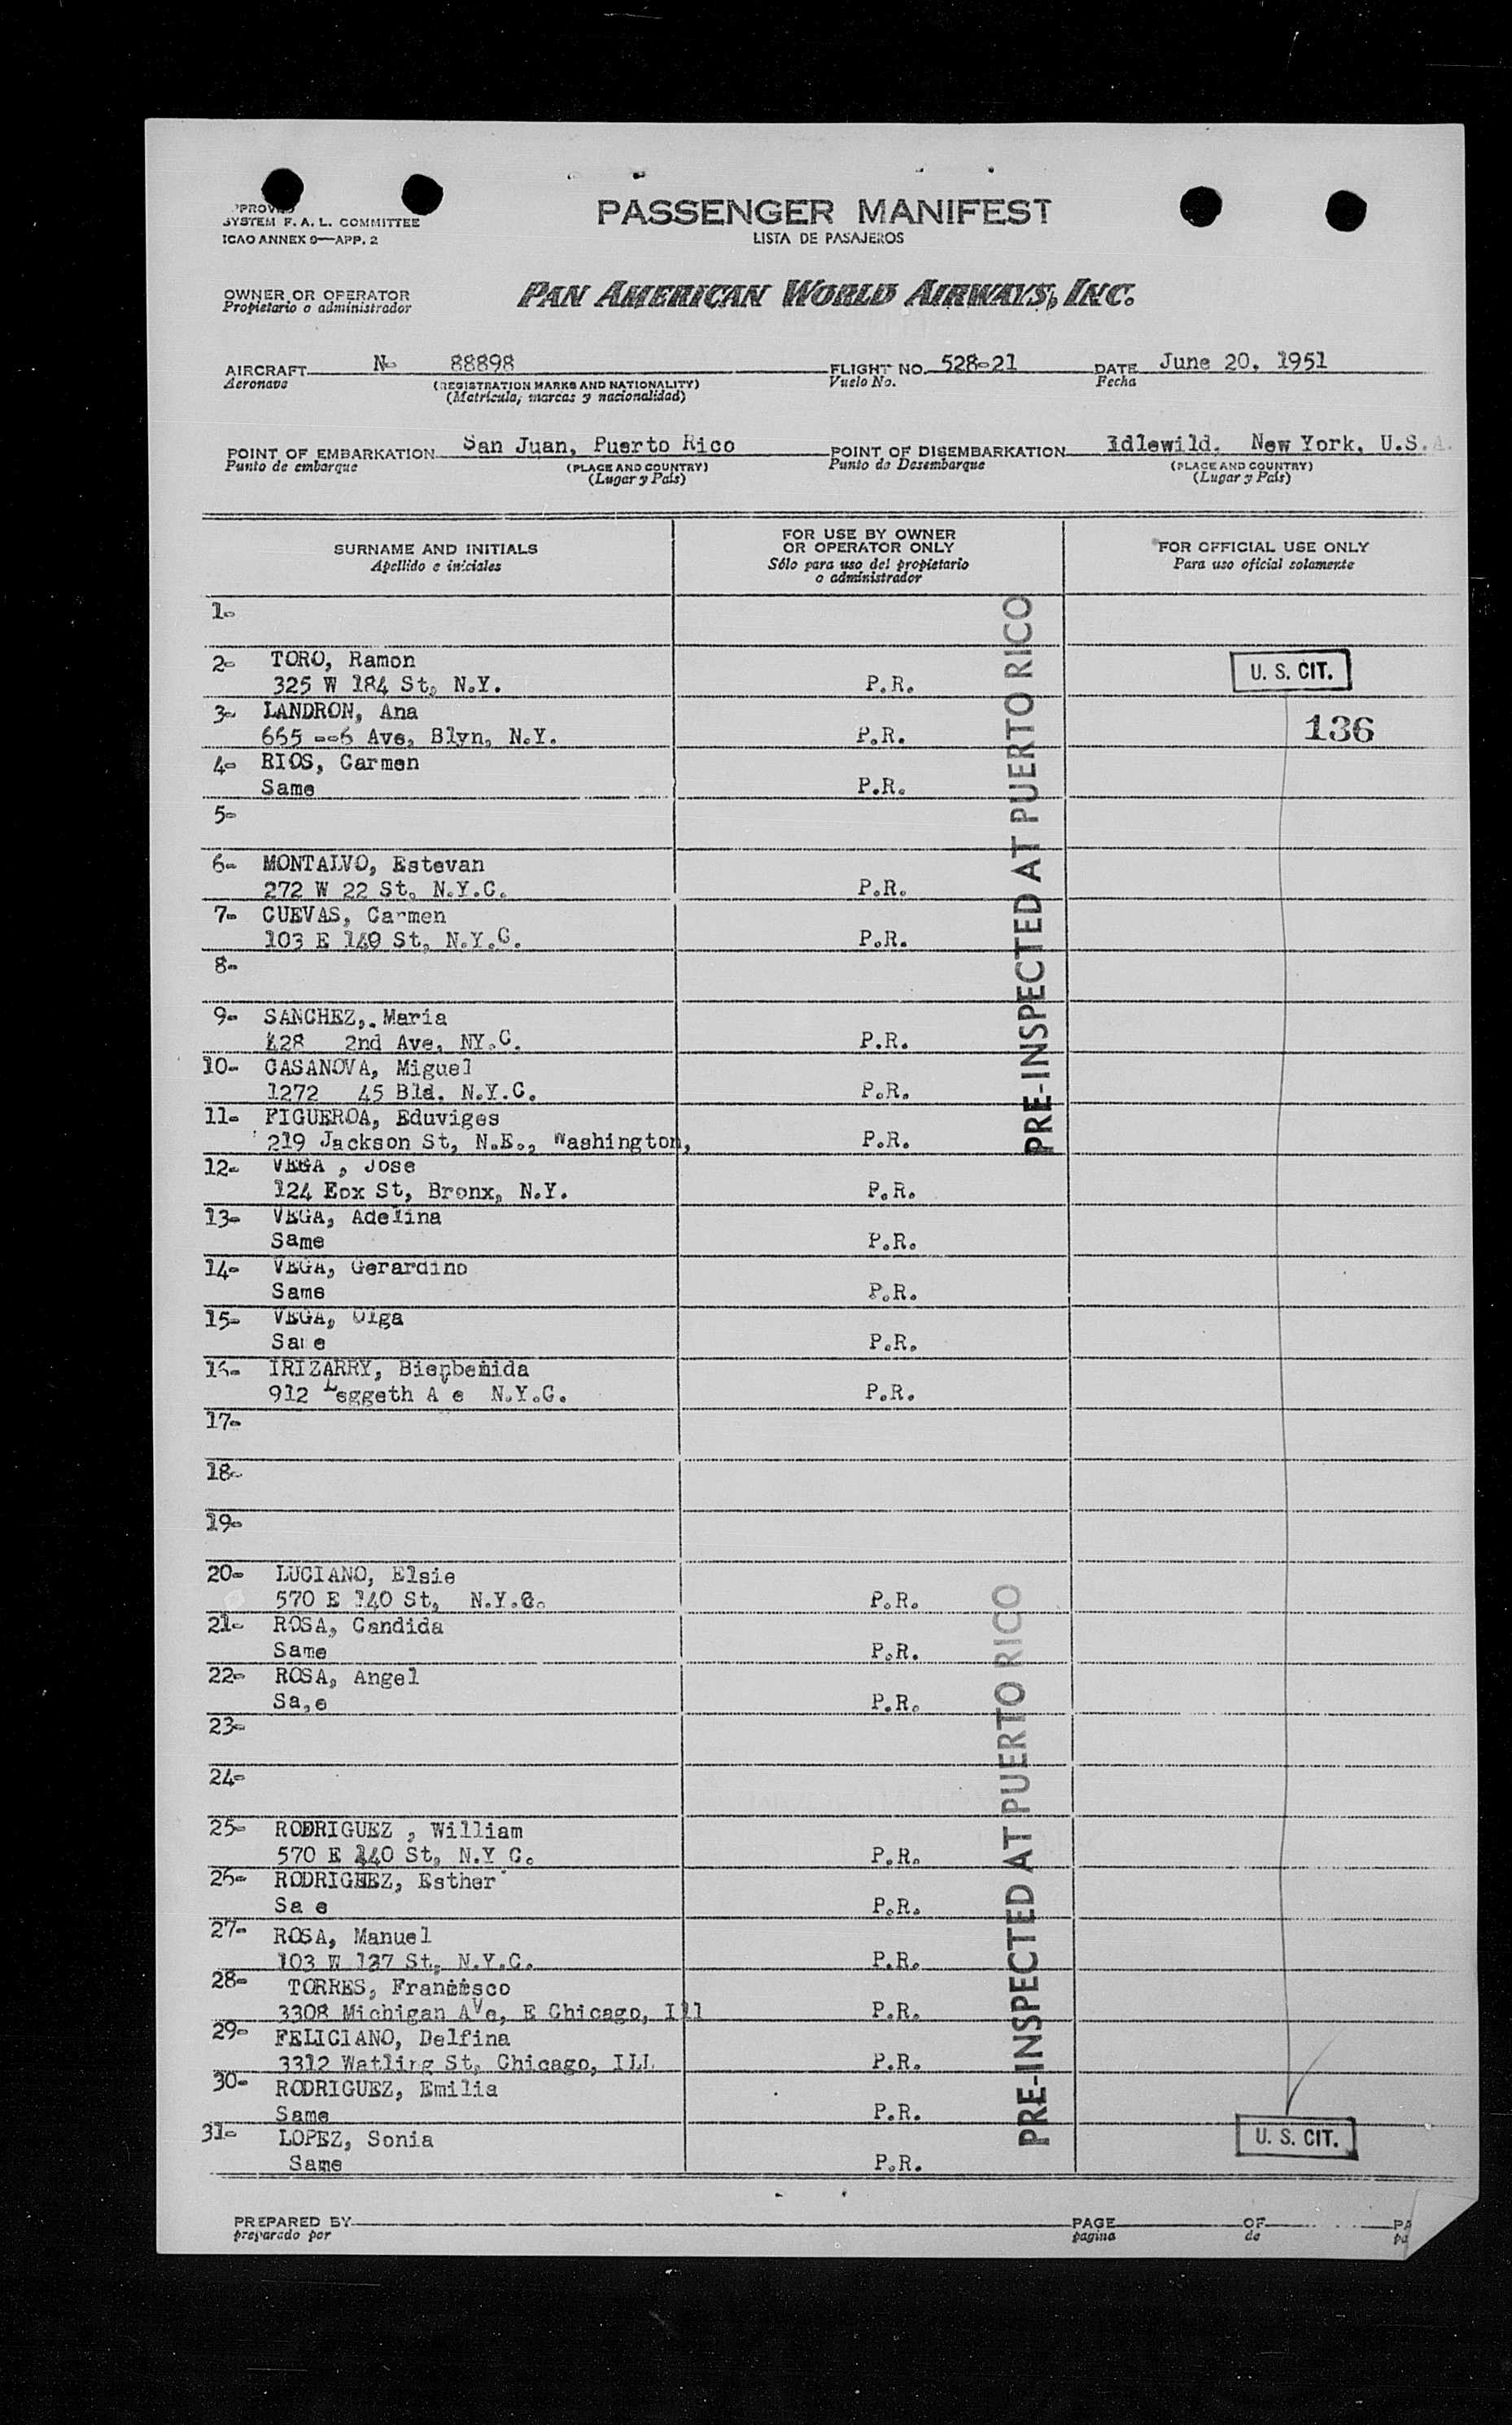 SYSTEM F. A. L. COMMITTEE
ICAO ANNEX 9—APP. 2
PASSENGER MANIFEST
LISTA DE PASAJEROS
OWNER OR OPERATOR
Propietario o administrador
PAN AMERICAN WORLD AIRWAYS, INC.
AIRCRAFT N- 88898
Aeronave
(REGISTRATION MARKS AND NATIONALITY)
(Matricula, marcas y nacionalidad)
FLIGHT NO. 528-21
Vuelo No.
DATE June 20, 1951
Fecha
POINT OF EMBARKATION San Juan, Puerto Rico
Punto de embarque
(PLACE AND COUNTRY)
(Lugar y País)
POINT OF DISEMBARKATION Idlewild. New York, U.S.A.
Punto de Desembarque
(PLACE AND COUNTRY)
(Lugar y País)
SURNAME AND INITIALS
Apellido e iniciales
FOR USE BY OWNER
OR OPERATOR ONLY
Sólo para uso del propietario
o administrador
FOR OFFICIAL USE ONLY
Para uso oficial solamente
1-
2- TORO, Ramon
325 W 184 St, N.Y. P.R.
U. S. CIT.
3- LANDRON, Ana
665 --6 Ave, Blyn, N.Y. P.R.
136
4- RIOS, Carmen
Same P.R.
5-
6- MONTALVO, Estevan
272 W 22 St, N.Y.C. P.R.
7- CUEVAS, Carmen
103 E 149 St, N.Y.C. P.R.
8-
9- SANCHEZ,. Maria
428 2nd Ave, NY.C. P.R.
10- CASANOVA, Miguel
1272 45 Bld. N.Y.C. P.R.
11- FIGUEROA, Eduviges
219 Jackson St, N.E., Washington, P.R.
PRE-INSPECTED AT PUERTO RICO
12- VEGA , Jose
124 Fox St, Bronx, N.Y. P.R.
13- VEGA, Adelina
Same P.R.
14- VEGA, Gerardino
Same P.R.
15- VEGA, Olga
Sa e P.R.
16- IRIZARRY, Bienbenida
912 Leggeth A e N.Y.C. P.R.
17-
18-
19-
20- LUCIANO, Elsie
570 E 140 St, N.Y.C. P.R.
21- ROSA, Candida
Same P.R.
22- ROSA, Angel
Sa,e P.R.
23-
24-
25- RODRIGUEZ , William
570 E 140 St, N.Y C. P.R.
26- RODRIGUEZ, Esther
Sa e P.R.
27- ROSA, Manuel
103 W 137 St, N.Y.C. P.R.
28- TORRES, Francisco
3308 Michigan Ave, E Chicago, Ill P.R.
29- FELICIANO, Delfina
3312 Watling St, Chicago, ILL P.R.
30- RODRIGUEZ, Emilia
Same P.R.
PRE-INSPECTED AT PUERTO RICO
31- LOPEZ, Sonia
Same P.R.
U. S. CIT.
PREPARED BY
preparado por
PAGE OF
pagina de